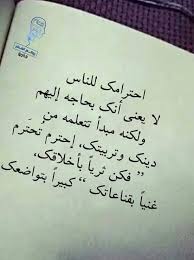 احترامك للناس
لا يعني أنك بحاجه إليهم
ولكنه مبدأ تتعلمه من
دينك وتربيتك، إحترم تُحترم
” فكن ثرياً بأخلاقك،
غنياً بقناعاتك “ كبيراً بتواضعك